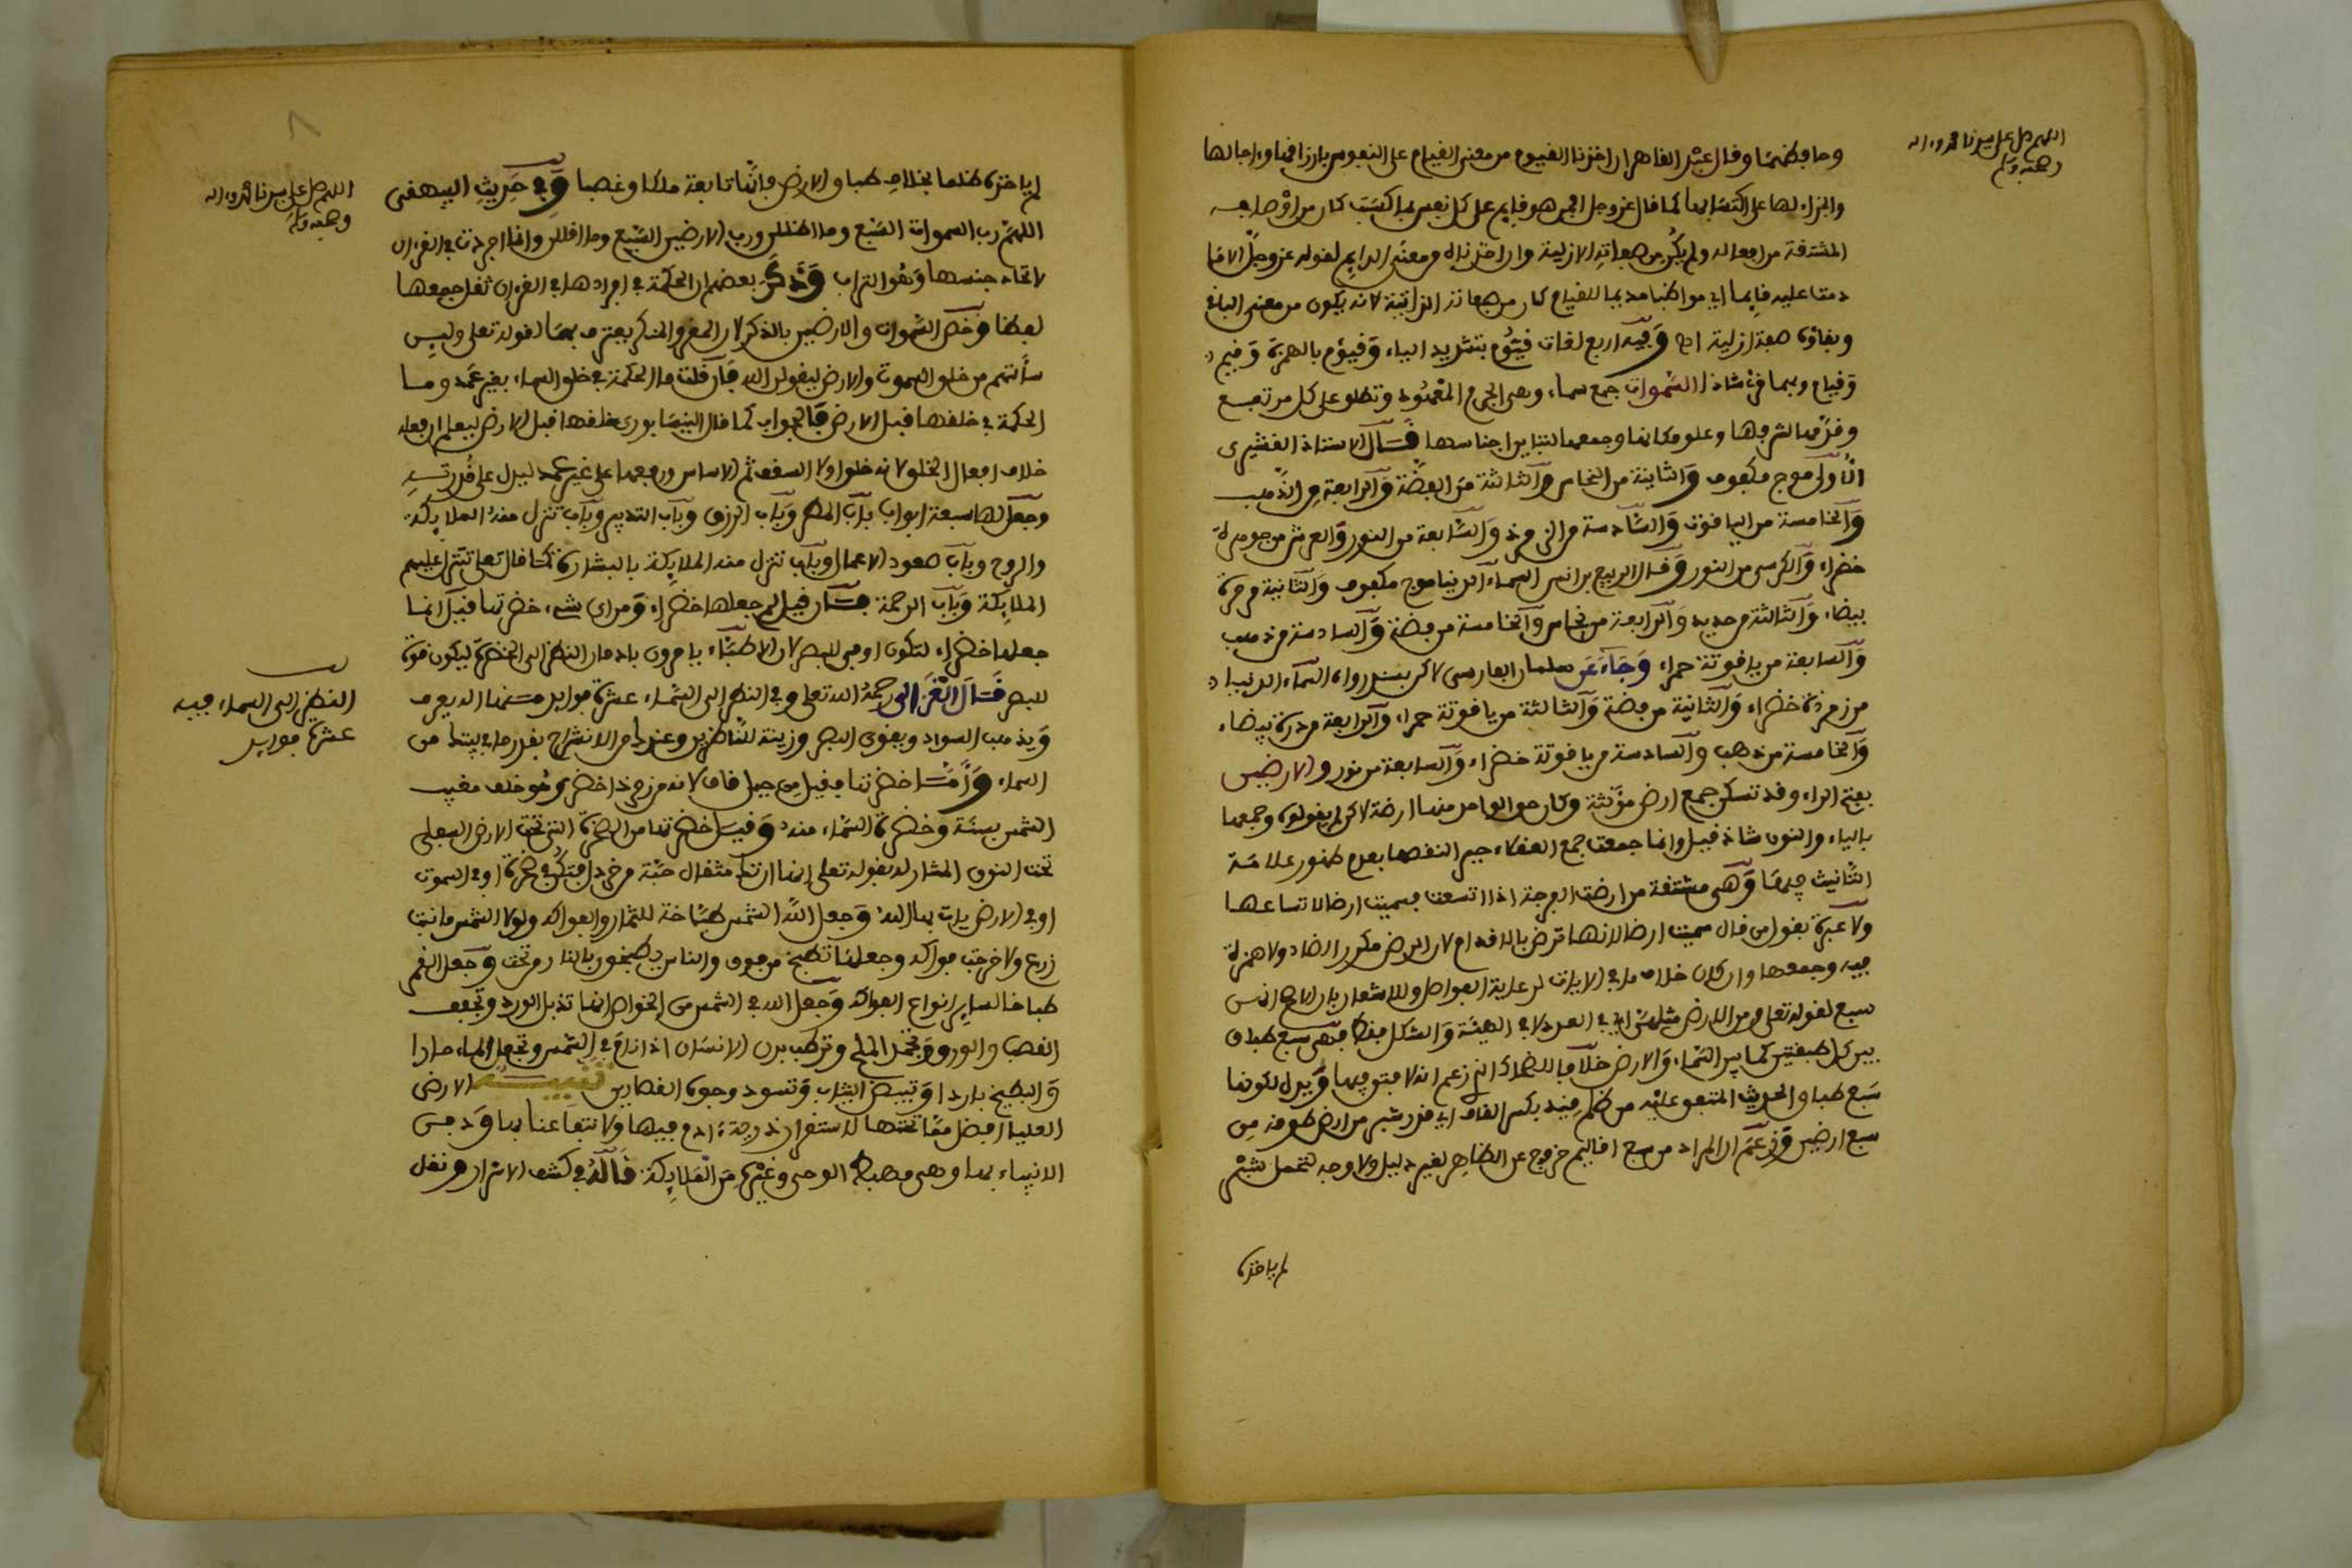 اللهم صل على سيدنا محمد وءاله
وصحبه وسلم
وحافظهما وقال عبد القاهر ان اخذنا القيوم من معنى القيام على النفوس بارزاقها وءاجالها
والجزاء لها على اكتسابها كما قال عز وجل افمن هو قايم على كل نفس بما كسبت كان من اوصافه
المشتقة من افعاله ولم يكن من صفاته الازلية وان اخذناه من معنى الدايم لقوله عز وجل الا ما
دمت عليه قايما اي مواظبا مديما للقيام كان من صفاته الذاتية لانه يكون من معنى الباقي
وبقاؤه صفة ازلية اه وفيه اربع لغات قيوم بتشديد الياء وقيؤم بالهمزة وقيم
وقيام وبهما قرئ شاذا السموات جمع سماء وهي الجرم المعهود وتطلق على كل مرتفع
وقدمها لشرفها وعلو مكانها وجمعها لتباين اجناسها قال الاستاذ القشيري
الاولى موج مكفوف والثانية من النحاس والثالثة من الفضة والرابعة من الذهب
والخامسة من الياقوت والسادسة من الزمرد والسابعة من النور والعرش من جوهرة
خضراء والكرسي من النور وقال الربيع بن انس السماء الدنيا موج مكفوف والثانية مرمرة
بيضاء والثالثة حديد والرابعة من نحاس والخامسة من فضة والسادسة من ذهب
والسابعة من ياقوتة حمراء وجاء عن سلمان الفارسي لاكن بسند رواه السماء الدنيا
من زمردة خضراء والثانية من فضة والثالثة من ياقوتة حمراء والرابعة من درة بيضاء
والخامسة من ذهب والسادسة من ياقوتة خضراء والسابعة من نور والارضين
بفتح الراء وقد تسكن جمع ارض مؤنثة وكان حق الواحد منها ارضة لاكن لم يقولوه وجمعها
بالياء والنون شاذ قيل وانما جمعت جمع العقلاء جبر النقصها بعدم ظهور علامة
التانيث فيها وهي مشتقة من ارضت القرحة اذا اتسعت فسميت ارضا لاتساعها
ولا عبرة بقول من قال سميت ارضا لانها ترض بالاقدام لان الرض مكرر الضاد ولا همزة
فيه وجمعها وان كان خلاف ما في الايات لرعاية الفواصل وللاشعار بان الاصح انهن
سبع لقوله تعلى ومن الارض مثلهن اي في العدد لا في الهيئة والشكل فقط فهي سبع طباق
بين كل طبقتين كما بين السماء والارض خلافا للضحاك الذي زعم انه لا فتوق فيها ويدل لكونها
سبع طباق الحديث المتفق عليه من ظلم قيد بكسر القاف اي قدر شبر من ارض طوقه من
سبع ارضين وزعم ان المراد من سبع اقاليم خروج عن الظاهر بغير دليل ولا وجه لتحمل شبر
لم ياخذه
٨
اللهم صل على سيدنا محمد وءاله
وصحبه وسلم
لم ياخذه ظلما بخلاف طباق الارض فانها تابعة ملكا وغصبا وفي حديث البيهقي
اللهم رب السموات السبع وما اظللن ورب الارضين السبع وما اقللن وانما افردت في القرءان
لاتحاد جنسها وهو التراب وذكر بعضهم ان الحكمة في افرادها في القرءان ثقل جمعها
لفظا وخص السموات والارضين بالذكر لان المقر والمنكر يعترف بهما لقوله تعلى ولين
سألتهم من خلق السموات والارض ليقولن الله فان قلت ما الحكمة في خلق السماء بغير عمد وما
الحكمة في خلقها قبل الارض فالجواب كما قال النيسابوري خلقها قبل الارض ليعلم ان فعله
خلاف افعال الخلق لانه خلق اولا السقف ثم الاساس ورفعها على غير عمد ليدل على قدرته
وجعل لها سبعة ابواب باب المطر وباب الرزق وباب التدبير وباب تنزل منه الملايكة
والروح وباب صعود الاعمال وباب تنزل منه الملايكة بالبشارة كما قال تعلى تتنزل عليهم
الملايكة وباب الرحمة فان قيل لم جعلها خضراء ومن اي شيء خضرتها قيل انما
جعلها خضراء لتكون اوفق للبصر لان الاطباء يامرون بادمان النظر الى الخضرة ليكون قوة
للبصر قال الغزالي رحمه الله تعلى وفي النظر الى السماء عشرة فوايد منها انه يعرف
ويذهب السواد ويقوي البصر وزينة للناظرين وعندها من الانشراح بقدر ما في بيتها من
السماء واما خضرتها فقيل من جبل قاف لانه من زمرد اخضر وهو خلف مغيب
الشمس بسنة وخضرة السماء منه وقيل خضرتها من الصخرة التي تحت الارض السفلى
تحت النون المشار له بقوله تعلى انها ان تك مثقال حبة من خردل فتكن في صخرة او في السموت
او في الارض يات بها الله وجعل الله الشمس طباخة للثمار والفواكه ولولا الشمس ما نبت
زرع ولا خرجت فواكه وجعلها تطبخ من فوق والناس يطبخون بالنار من تحت وجعل القمر
طباخا لساير انواع الفواكه وجعل الله في الشمس من الخواص انها تذبل الورد وتجفف
القصب والورق وتجمد الملح وترطب بدن الانسان اذا نام في الشمس وتجعل الماء حارا
والبطيخ باردا وتبيض الثياب وتسود وجوه القصارين تنبيه الارض
العليا افضل مما تحتها لاستقرار ذرية ءادم فيها ولانتفاعنا بها ودفن
الانبياء بها وهي مهبط الوحي وغيره من الملايكة قاله في كشف الاسرار ونقل
النظر الى السماء فيه
عشرة فوايد